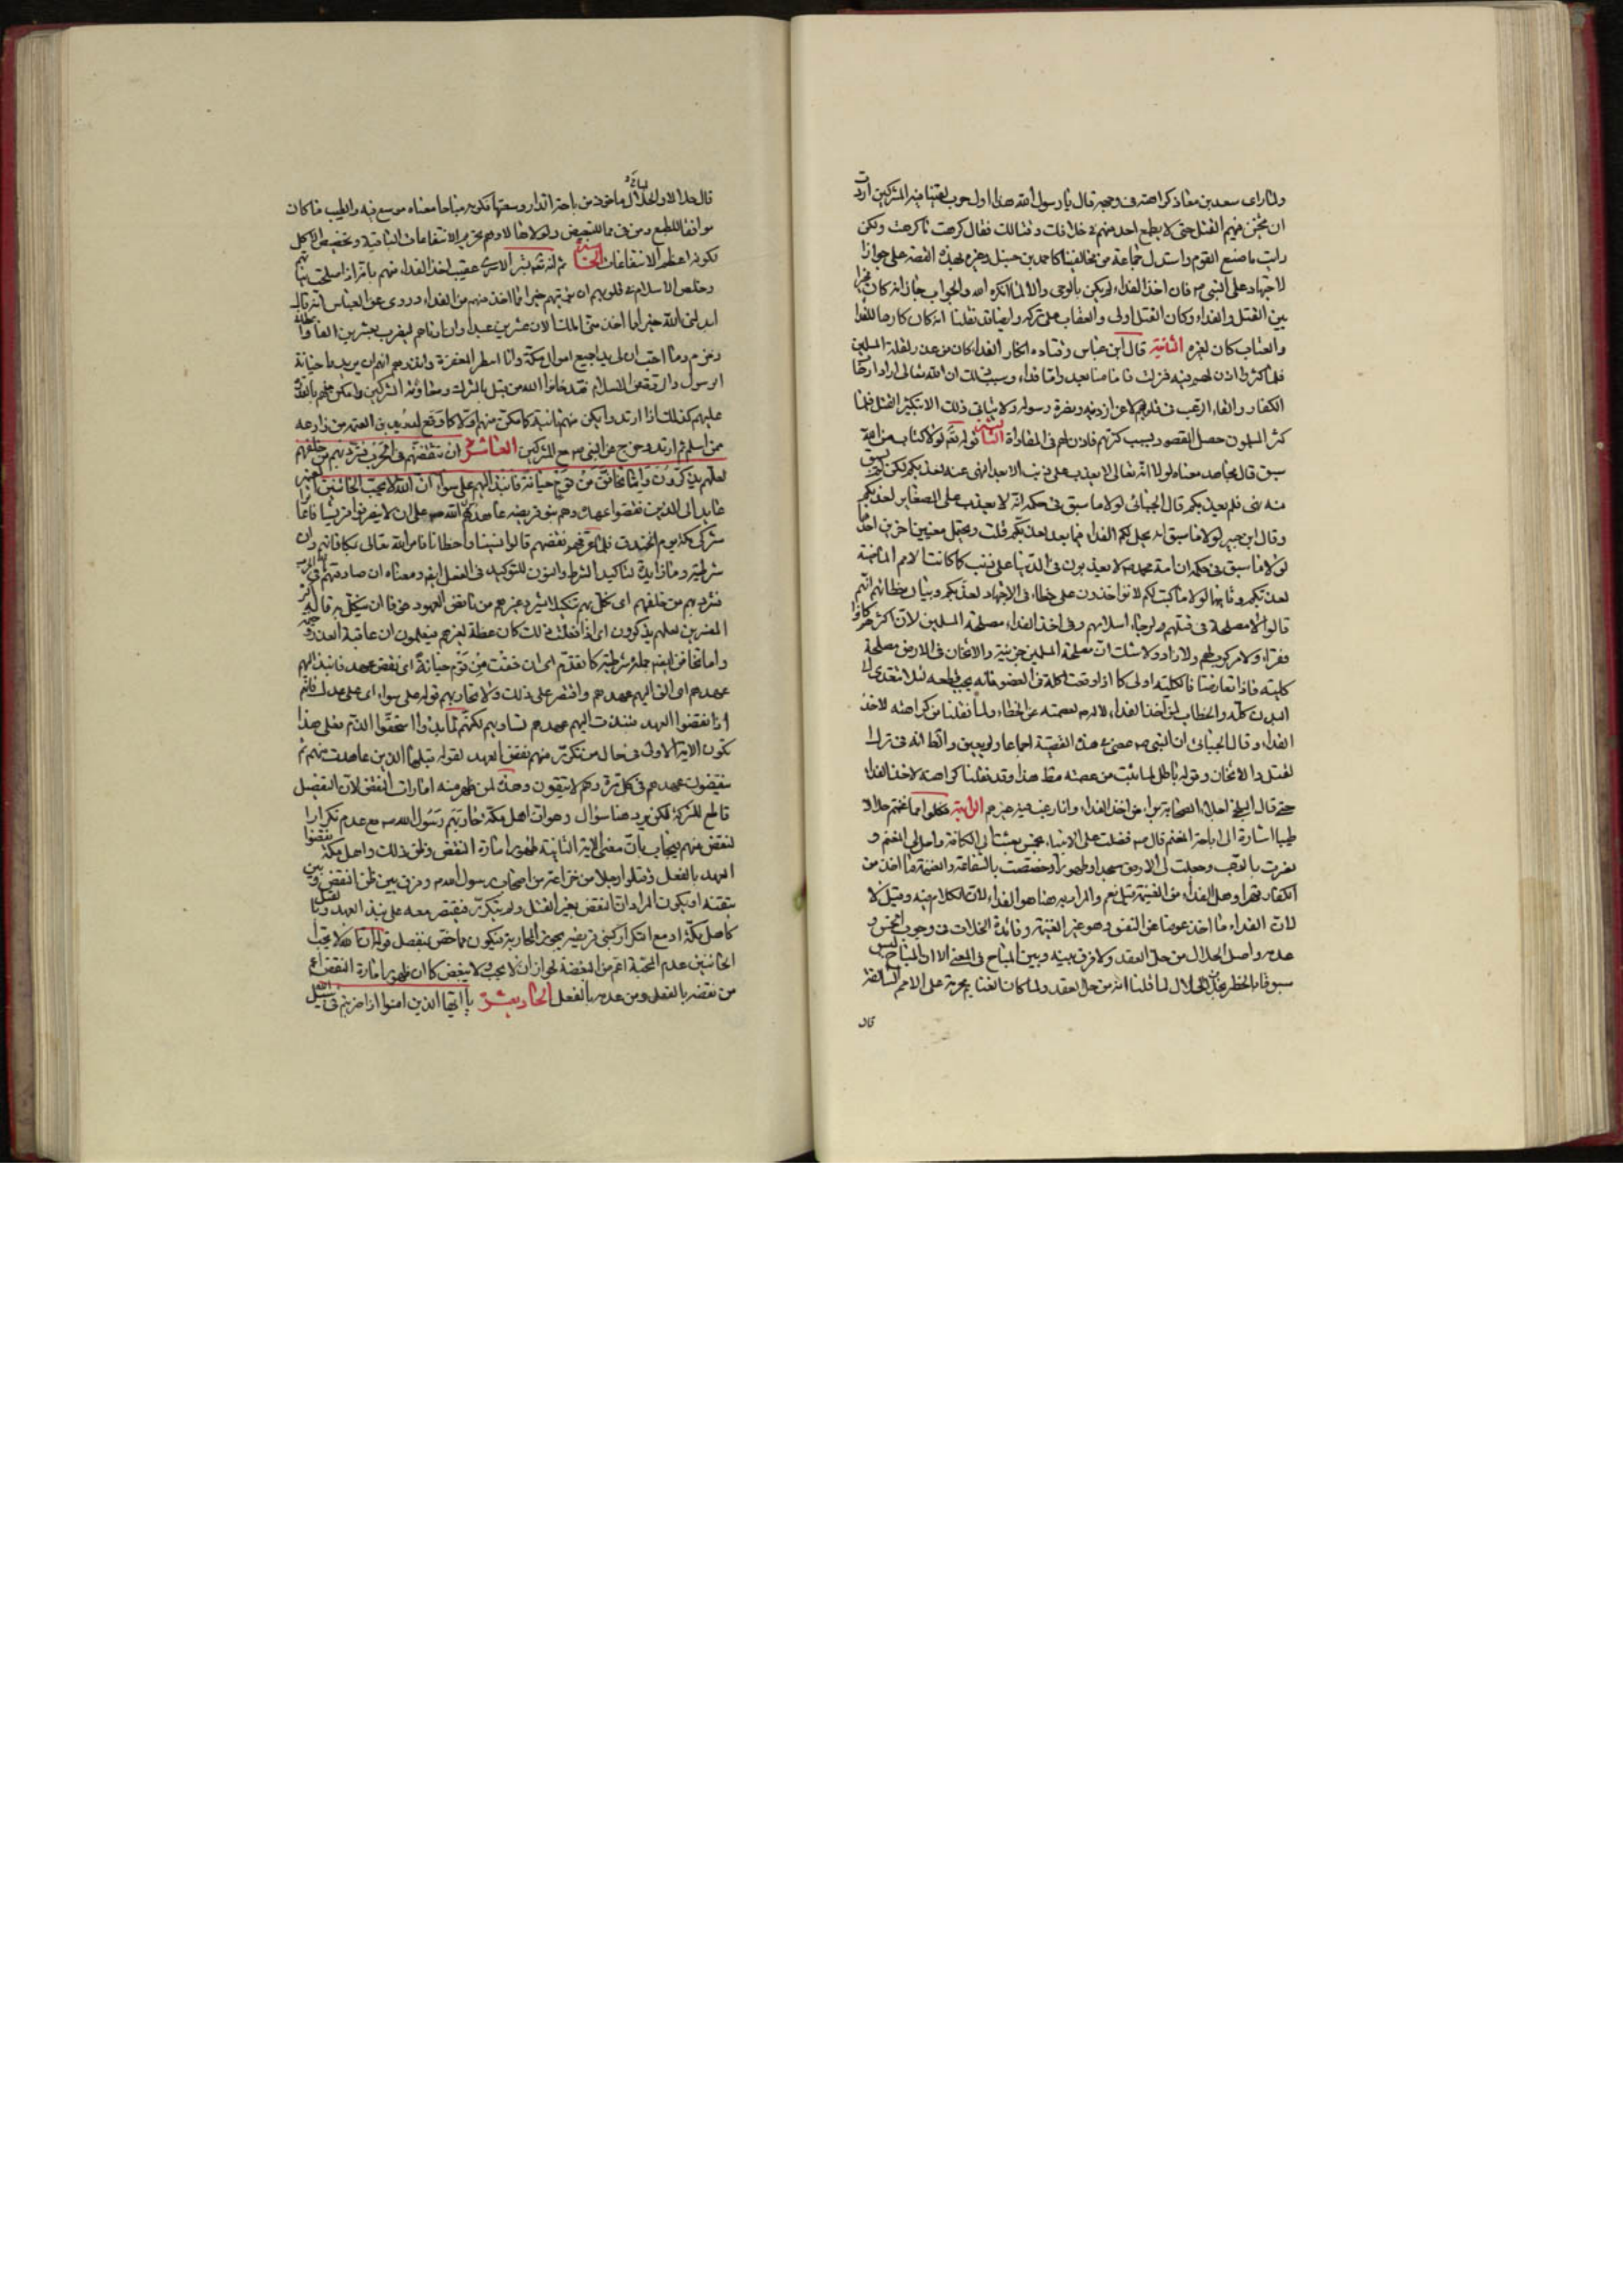 ولما رأى سعد بن معاذ كراهته في وجهه قال يا رسول الله هذا اول حرب لقينا فيه المشركين اردت
ان يثخن فيهم القتل حتى لا يطمع احد منهم في خلافك وقتالك فقال كرهت ما كرهت ولكن
رأيت ما صنع القوم واستدل جماعة من مخالفينا كاحمد بن حنبل وغيره بهذه القصة على جواز
الاجتهاد على النبي ص فان اخذ الفداء لم يكن بالوحي والا لما انكره الله والجواب جاز انه كان مخيرا
بين القتل والفداء وكان القتل اولى والعقاب على تركه وايضا قد نقلنا انه كان كارها للفداء
والعتاب كان لغيره الثانية قال ابن عباس وقتادة انكار الفداء كان من عند لقلة المسلمين
فلما كثروا اذن لهم فيه فنزلت فاما منا بعد واما فداء وسبب ذلك ان الله تعالى اراد ارهاب
الكفار والقاء الرعب في قلوبهم لاعزاز دينه ونصرة رسوله ولا يتأتى ذلك الا بتكثير القتل فلما
كثر المسلمون حصل المقصود بسبب كثرتهم فاذن لهم في المفاداة الثالثة قوله تعالى لولا كتاب من الله
سبق قال مجاهد معناه لولا انه تعالى لا يعذب على ذنب الا بعد النهي عنه لعذبكم لكن لم يسبق
منه نهي فلم يعذبكم قال الجبائي لولا ما سبق في حكمه انه لا يعذب على الصغاير لعذبكم
وقال ابن جبير لولا ما سبق انه يحل لكم الفداء فيما بعد لعذبكم قلت ويحتمل معنيين اخرين احدهما
لولا ما سبق في حكمه ان امة محمد ص لا يعذبون في الدنيا على ذنب كما كانت الامم الماضية
لعذبكم وثانيهما لولا ما كتب لكم لا تؤاخذون على خطاء في الاجتهاد لعذبكم وبيان خطائهم انهم
قالوا لا مصلحة في قتلهم ولرجاء اسلامهم وفي اخذ الفداء مصلحة المسلمين لان اكثرهم كانوا
فقراء ولا مركوب لهم ولا زاد ولا شك ان مصلحة المسلمين جزئية والاثخان في الارض مصلحة
كلية فاذا تعارضتا فالكلية اولى كما اذا وقعت اكلة في العضو فانه يجب قطعه لئلا تتعدى الى
البدن كله والخطاب لمن اخذ الفداء لا له ص لعصمته عن الخطاء ولما نقلنا من كراهته لاخذ
الفداء وقال الجبائي ان النبي ص عصى في هذه القضية اجماعا ولم يعين والظ انه في ترك
القتل والاثخان وقوله باطل لما ثبت من عصمته مط هذا وقد نقلنا كراهته لاخذ الفداء
حتى قال البلخي اجلاء الصحابة براء من اخذ الفداء وانما رغب فيه غيرهم الرابعة فكلوا مما غنمتم حلالا
طيبا اشارة الى اباحة المغنم قال ص فضلت على الانبياء بخمس بعثت الى الكافة واحل لي المغنم و
نصرت بالرعب وجعلت لي الارض مسجدا وطهورا وخصصت بالشفاعة والغنيمة ما اخذ من
الكفار قهرا وهل الفداء من الغنيمة قيل نعم والمراد به هنا هو الفداء لان الكلام فيه وقيل لا
لان الفداء ما اخذ عوضا عن النفس وهو غير الغنيمة وفائدة الخلاف في وجوب الخمس و
عدمه واصل الحلال من حل العقد ولا فرق بينه وبين المباح في المعنى الا ان المباح ليس
مسبوقا بالحظر بخلاف الحلال لما قلنا انه من حل العقد ولما كان الغنايم محرمة على الامم السالفة
قال
قال حلالا والحلال مأخوذ من باحة الدار وسعتها فكونه مباحا معناه موسع فيه والطيب ما كان
موافقا للطبع ومن في مما للتبعيض ولولاها لاوهم تحريم الانتفاعات الباقية وتخصيص الاكل
لكونه اعظم الانتفاعات الخامسة ثم انه تعالى بشر الاسرى عقيب اخذ الفداء منهم بانه اذا صلحت نياتهم
وخلص الاسلام في قلوبهم ان يؤتيهم خيرا مما اخذ منهم من الفداء وروى عن العباس انه قال
ابدلني الله خيرا مما اخذ مني الان عشرين عبدا وان ادناهم ليضرب بعشرين الفا واعطاني
زمزم وما احب ان لي بها جميع اموال مكة وانا انتظر المغفرة وانذرهم انهم ان يريدوا خيانة
الرسول والرقيعي للاسلام فقد خانوا الله من قبل بالشرك ومعاونة المشركين وامكن منهم بالغلبة
عليهم كذلك اذا ارتدوا يمكن منهم ثانية كما مكن منهم اولا كما وقع لعدي بن القيس من ذارعه
ممن اسلم ثم ارتد وخرج عن النبي ص مع المشركين العاشرة ان تثقفنهم في الحرب فشرد بهم من خلفهم
لعلهم يذكرون واما تخافن من قوم خيانة فانبذ اليهم على سواء ان الله لا يحب الخائنين الضمير
عايد الى الذين نقضوا عهدك وهم بنو قريضه عاهدهم رسول الله ص على ان لا يضروا قريشا فاعانوا
مشركي مكة يوم الخندق فلما عرفهم نقضهم قالوا نسينا واخطأنا فامر الله تعالى بمكافاتهم وان
شرطية وما زايدة لتأكيد الشرط والنون للتوكيد في الفعل ايضا ومعناه ان صادفتهم في الحرب
فشرد بهم من خلفهم اى نكل بهم تنكيلا يشرد غيرهم من ناقض العهود خوفا ان ينكل به قاله اكثر
المفسرين لعلهم يذكرون اى اذا فعلت ذلك كان عظة لغيرهم فيعلمون ان عاقبة الغدر وخيمة
واما تخافن ايضا جملة شرطية كما تقدم اى ان خفت من قوم خيانة اى نقض عهد فانبذ اليهم
عهدهم اى الق اليهم عهدهم واقتصر على ذلك ولا تحاربهم قوله على سواء اى على عدل فانهم
اذا نقضوا العهد فنبذت اليهم عهدهم تساويتم لكنهم لما بدؤا استحقوا الذم فعلى هذا
تكون الاية الاولى في حال من تكرر منهم نقض العهد لقوله قبلها الذين عاهدت منهم ثم
ينقضون عهدهم في كل مرة وهم لا يتقون وهذه لمن ظهر منه امارات النقض لان التفصيل
قاطع للشركة لكن يرد هنا سؤال وهو ان اهل مكة حاربهم رسول الله ص مع عدم تكرار
النقض منهم فيجاب بان معنى الاية الثانية ظهور امارة النقض وظن ذلك واهل مكة نقضوا
العهد بالفعل وقتلوا رجلا من خزاعة من اصحاب رسول الله ص وفرق بين ظن النقض وبين
تيقنه او يكون المراد ان النقض بغير القتل ولم يتكرر فيقتصر معه على نبذ العهد واما القتل
كاهل مكة او مع التكرار كبني قريضه يجوز المحاربة فيكون مما خص بمنفصل قوله ان الله لا يحب
الخائنين عدم المحبة اعم من البغضة لجواز ان لا يحب ولا يبغض كما ان ظهور امارة النقض اعم
من نقضه بالفعل ومن عدمه بالفعل الحادية عشرة يا ايها الذين امنوا اذا ضربتم في سبيل الله